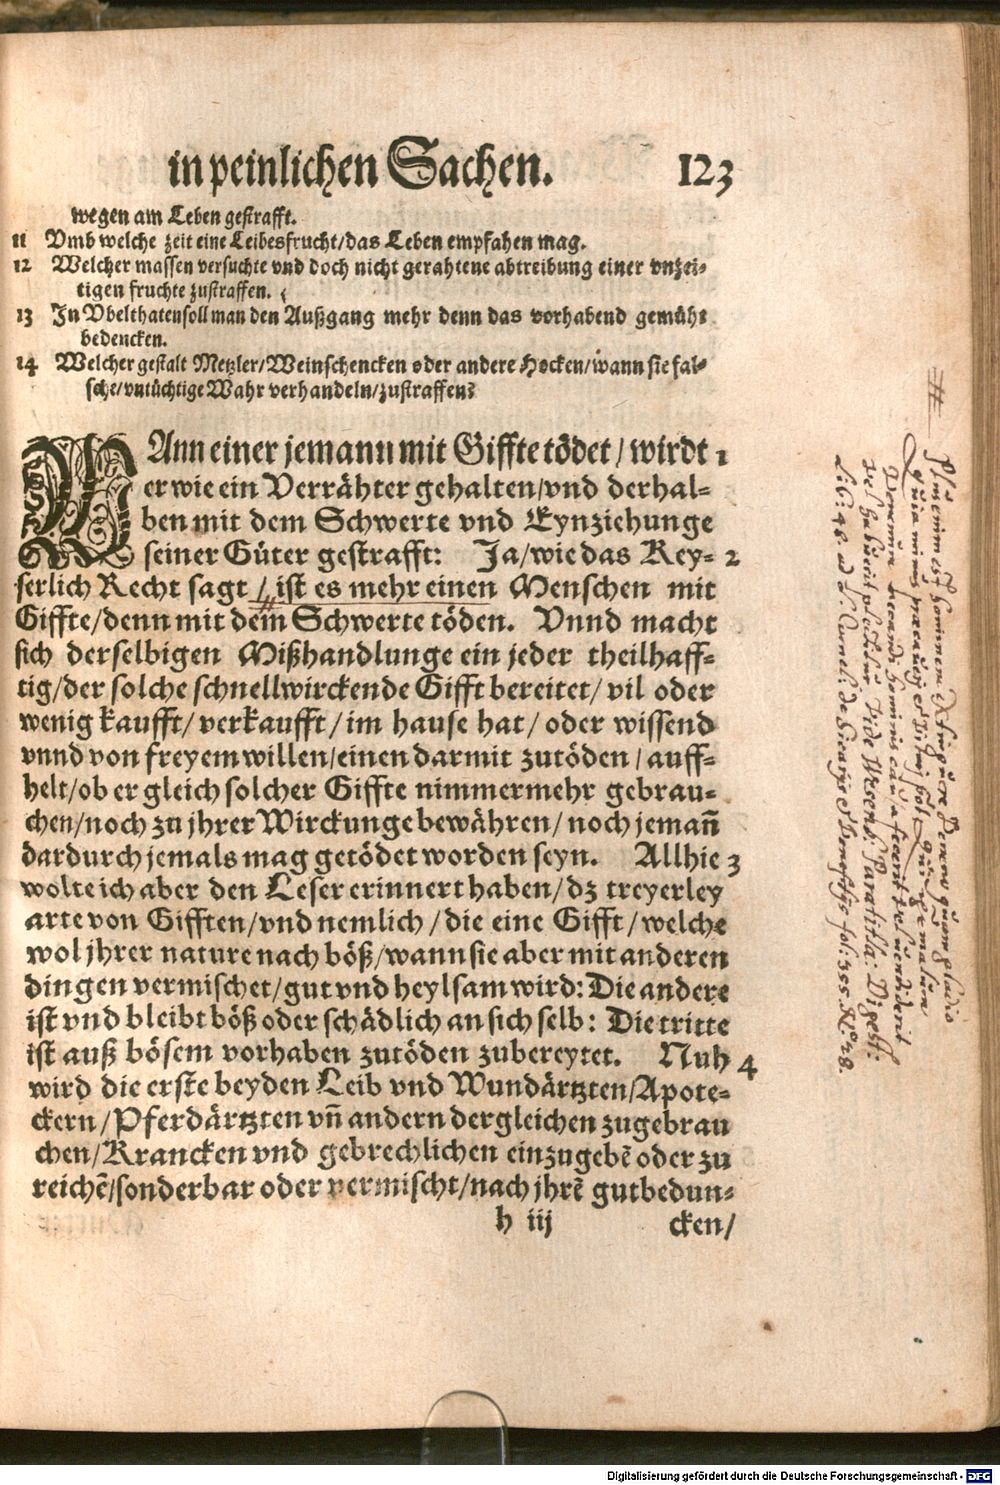 in peinlichen Sachen. 123
wegen am Leben gestrafft.
11 Vmb welche zeit eine Leibesfrucht/das Leben empfahen mag.
12 Welcher massen versuchte vnd doch nicht gerahtene abtreibung einer vnzei-
tigen fruchte zustraffen.
13 In Vbelthaten soll man den Außgang mehr denn das vorhabend gemüht
bedencken.
14 Welcher gestalt Metzler/Weinschencken oder andere Hocken/wann sie fal-
sche/vntüchtige Wahr verhandeln/zustraffen?
WAnn einer jemann mit Giffte tödet/wirdt 1
er wie ein Verrähter gehalten/vnd derhal-
ben mit dem Schwerte vnd Eynziehunge
seiner Güter gestrafft: Ja/wie das Key- 2
serlich Recht sagt/ist es mehr einen Menschen mit
Giffte/denn mit dem Schwerte töden. Vnnd macht
sich derselbigen Mißhandlunge ein jeder theilhaff-
tig/der solche schnellwirckende Gifft bereitet/vil oder
wenig kaufft/verkaufft/im hause hat/oder wissend
vnnd von freyem willen/einen darmit zutöden/auff-
helt/ob er gleich solcher Giffte nimmermehr gebrau-
chen/noch zu jhrer Wirckunge bewähren/noch jemañ
dardurch jemals mag getödet worden seyn. Allhie 3
wolte ich aber den Leser erinnert haben/dz treyerley
arte von Gifften/vnd nemlich/die eine Gifft/welche
wol jhrer nature nach böß/wann sie aber mit anderen
dingen vermischet/gut vnd heylsam wird: Die andere
ist vnd bleibt böß oder schädlich an sich selb: Die tritte
ist auß bösem vorhaben zutöden zubereytet. Nuh 4
wird die erste beyden Leib vnd Wundärtzten/Apote-
ckern/Pferdärtzten vñ andern dergleichen zugebrau
chen/Krancken vnd gebrechlichen einzugebẽ oder zu
reichẽ/sonderbar oder vermischt/nach jhrẽ gutbedun-
h iij cken/
Plus enim est hominem extinguere veneno quam gladio
Digitalisierung gefördert durch die Deutsche Forschungsgemeinschaft - DFG